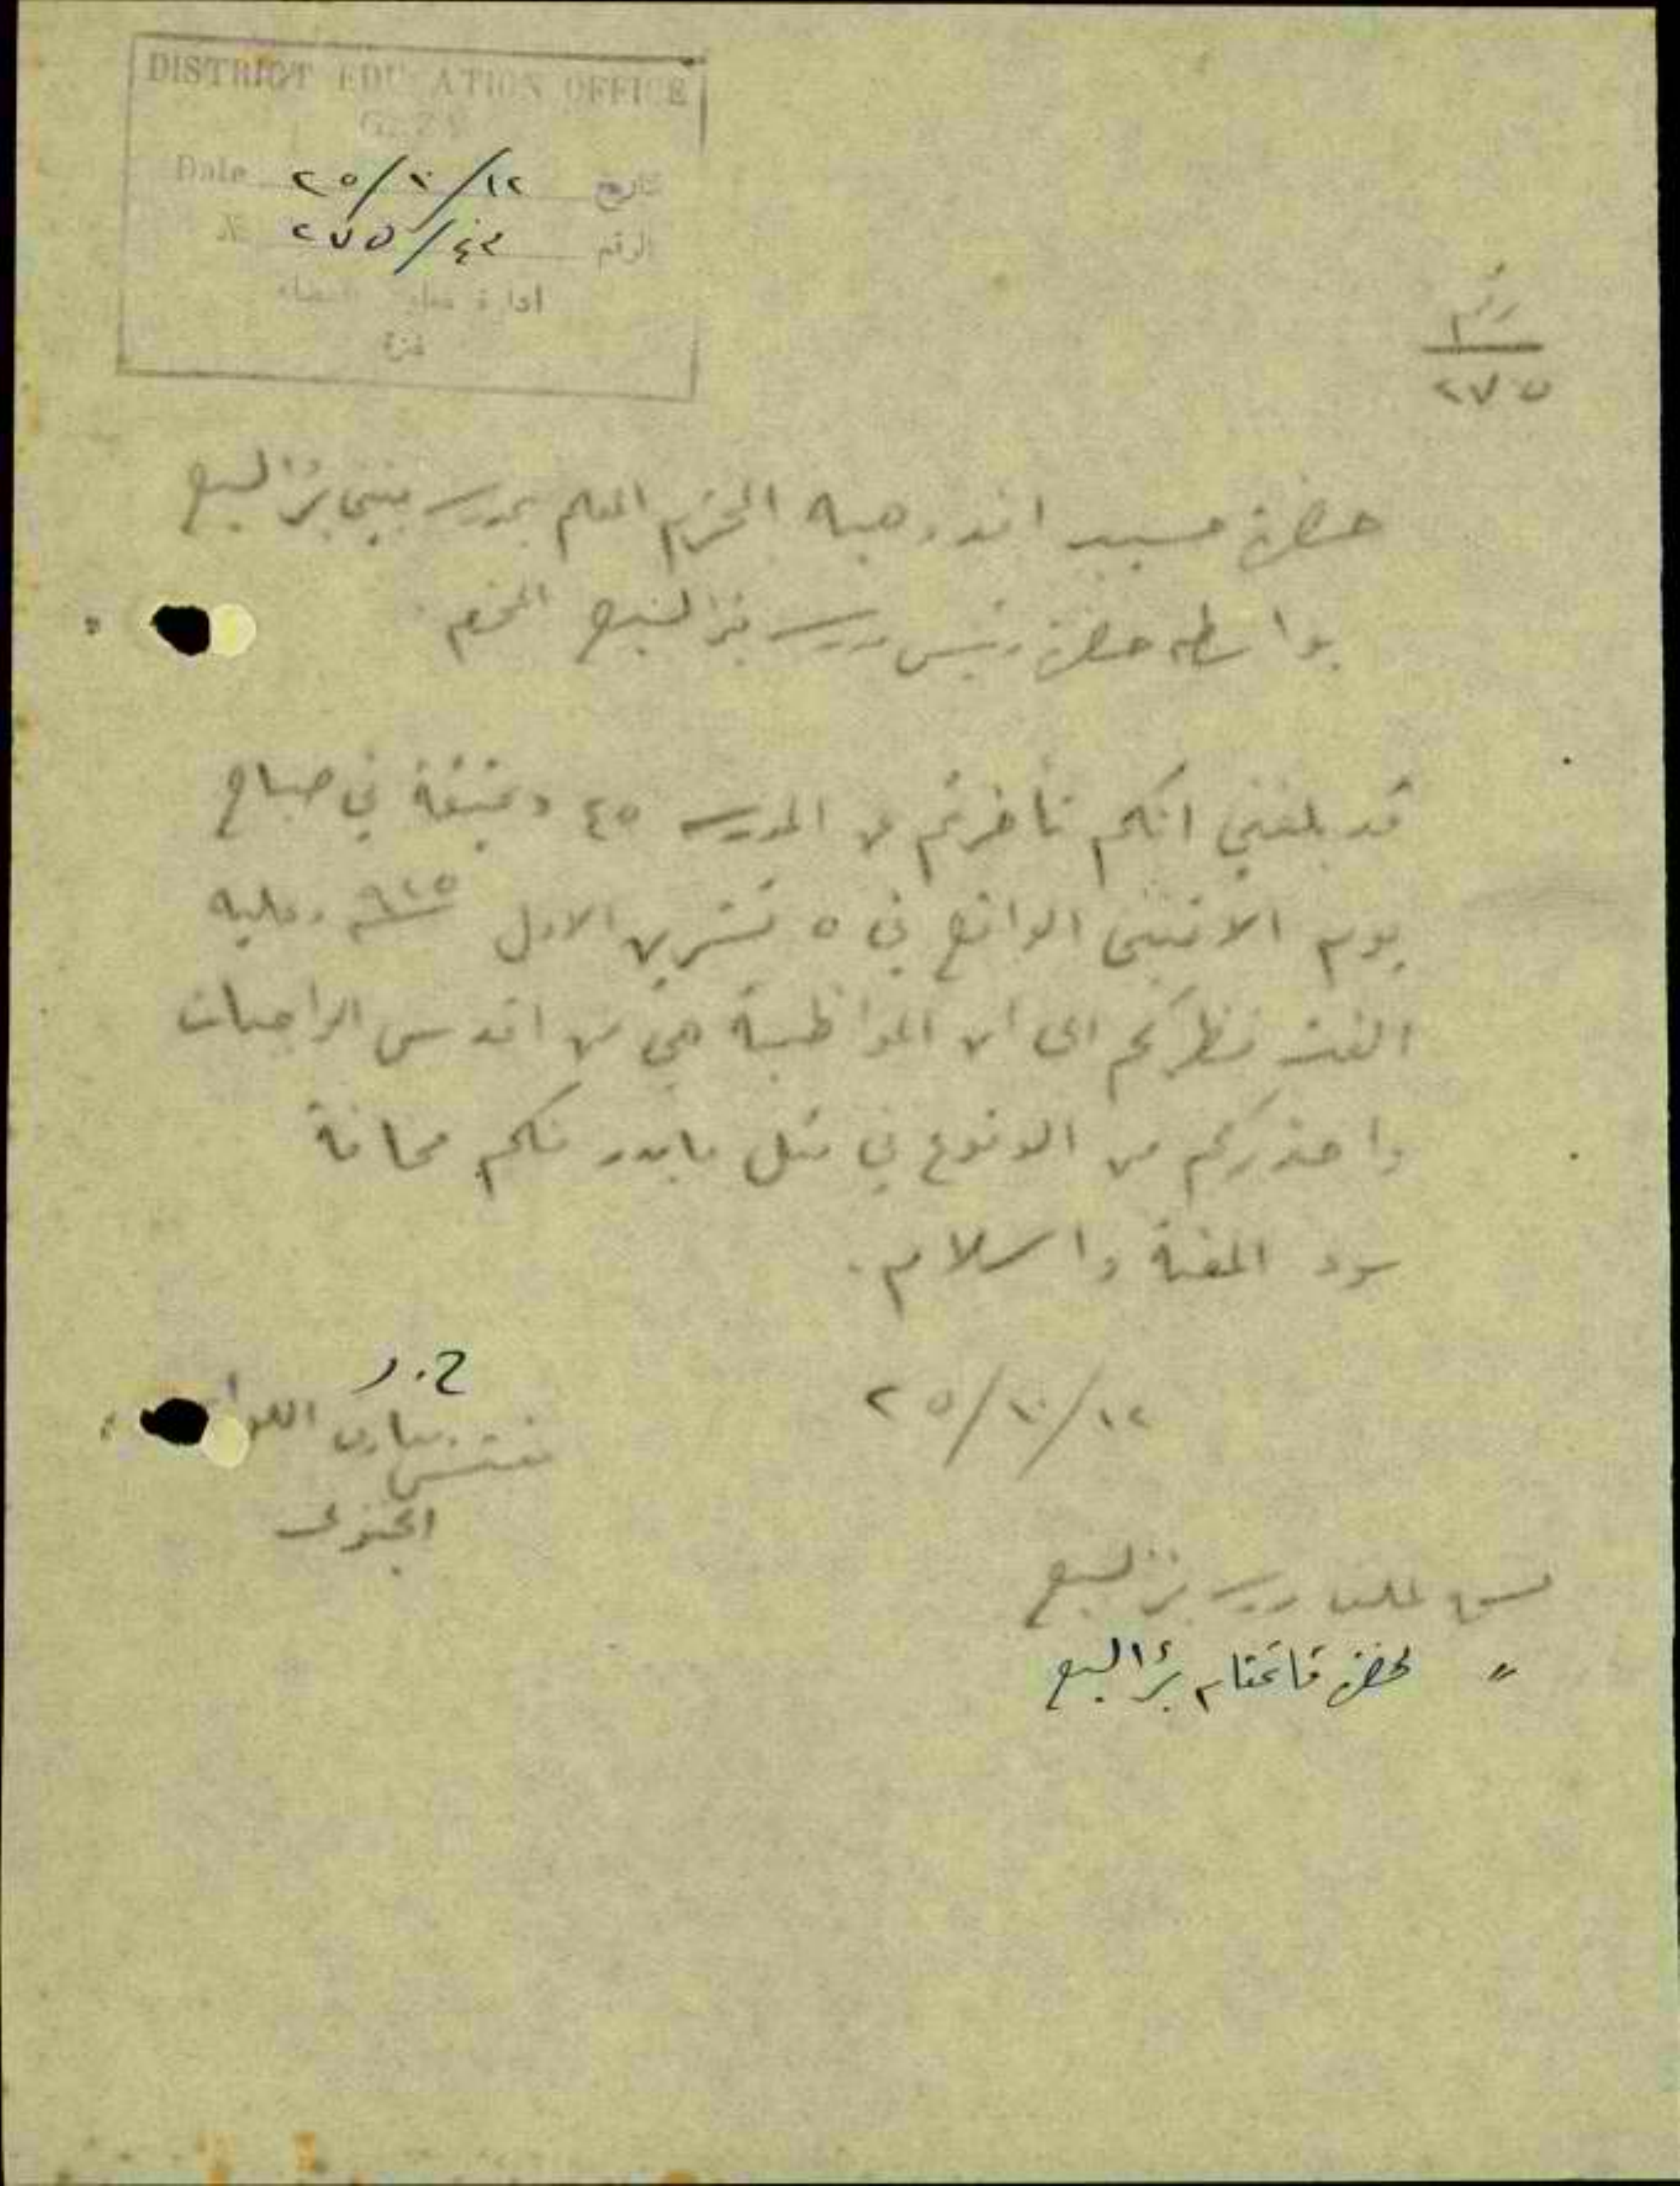 DISTRICT EDUCATION OFFICE
GAZA
Date ٢٥/١٠/١٢ تاريخ
№ ٢٧٥/٤٣ الرقم
ادارة معارف القضاء
غزة
رقم
٢٧٥
حضرة حسيب افندي هبه المحترم المعلم بمدرسة بنين بئر السبع
بواسطة حضرة رئيس مدرسة بئر السبع المحترم
قد بلغني انكم تأخرتم عن المدرسة ٤٥ دقيقة في صباح
يوم الاثنين الواقع في ٥ تشرين الاول ٩٢٥ وعليه
الفت نظركم الى ان المواظبة هي من اقدس الواجبات
واحذركم من الوقوع في مثل ما بدر منكم مخافة
سوء المغبة والسلام.
٢٥/١٠/١٢
ح.ر
مفتش معارف اللواء
الجنوبي
نسخة لملف مدرسة بئر السبع
〃 لحضرة قائمقام بئر السبع